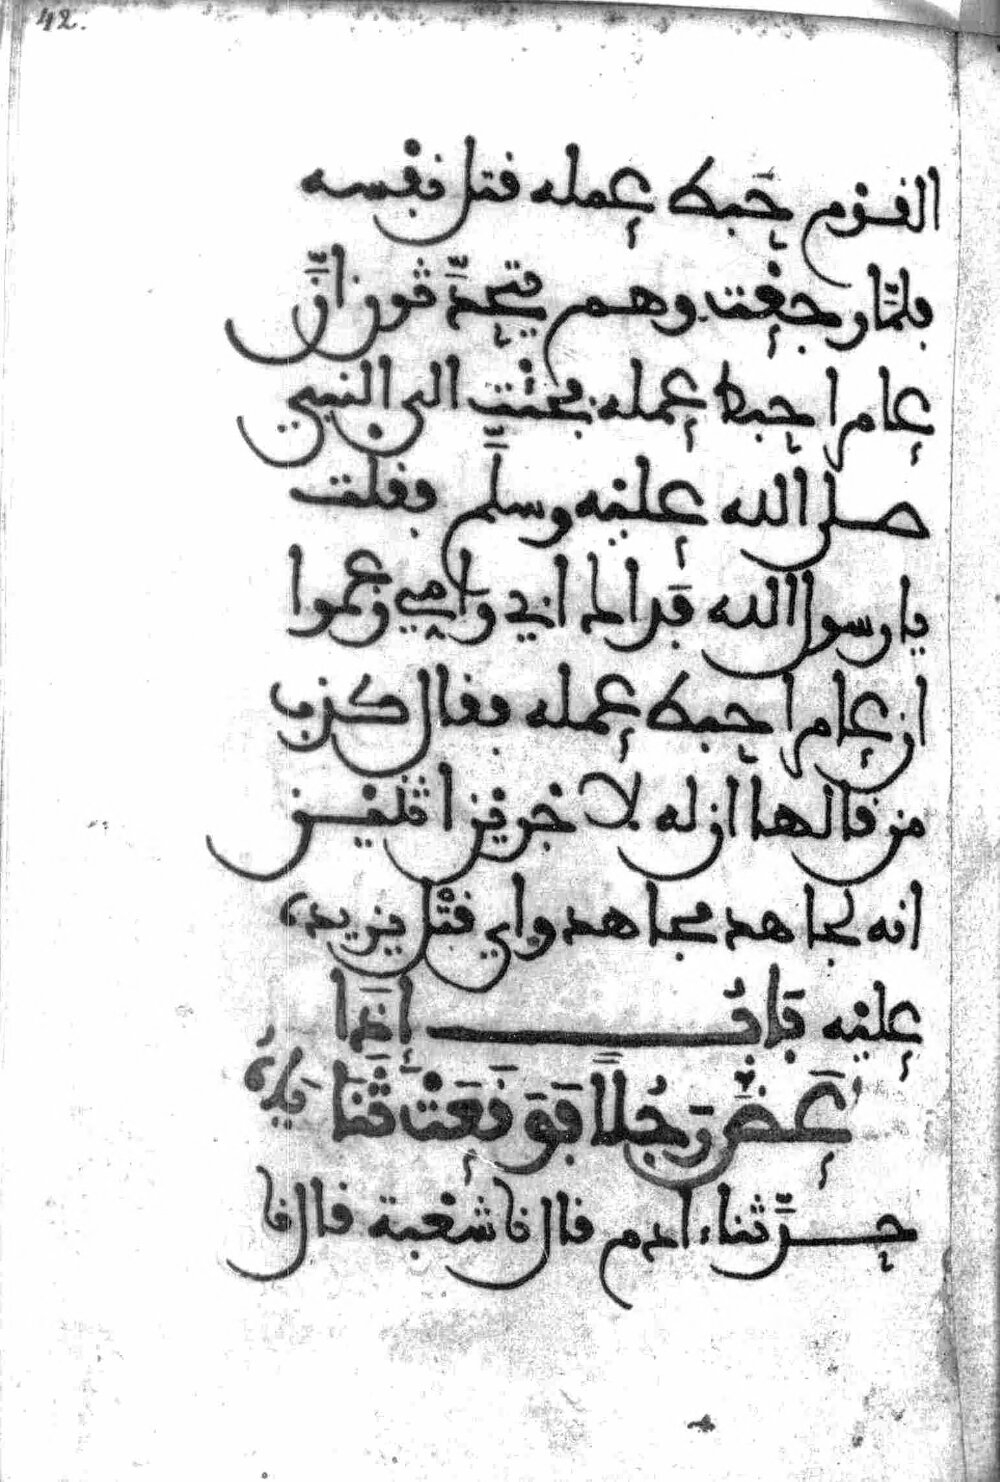 42.
القوم حبط عمله قتل نفسه
فلمّا رجعت وهم يتحدّثون انّ
عامرا حبط عمله فجئت الى النبي
صلى الله عليه وسلّم فقلت
يا رسول الله فداك ابي وامي زعموا
ان عامرا حبط عمله فقال كذب
من قالها ان له لاجرين اثنين
انه لجاهد مجاهد واي قتل يزيده
عليه بَابُ إِذَا
عَضَّ رَجُلًا فَوَقَعَتْ ثَنَايَاهُ
حدّثنا ادم قال نا شعبة قال نا